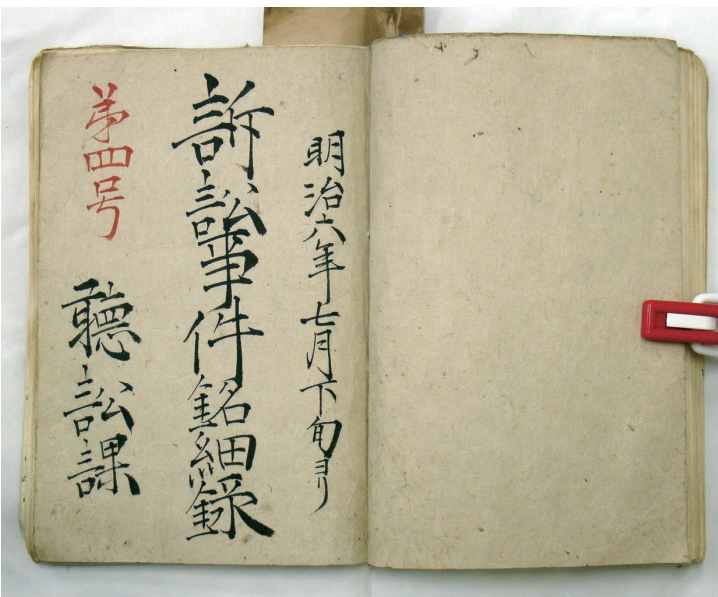 明治六年七月下旬ヨリ
訴訟事件銘細録
第四号
聴訟課